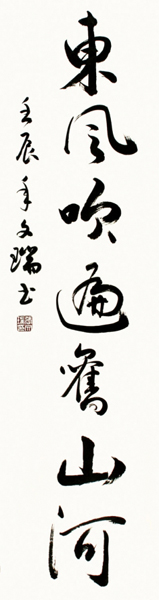 東風吹遍舊山河
壬辰年文瑞书